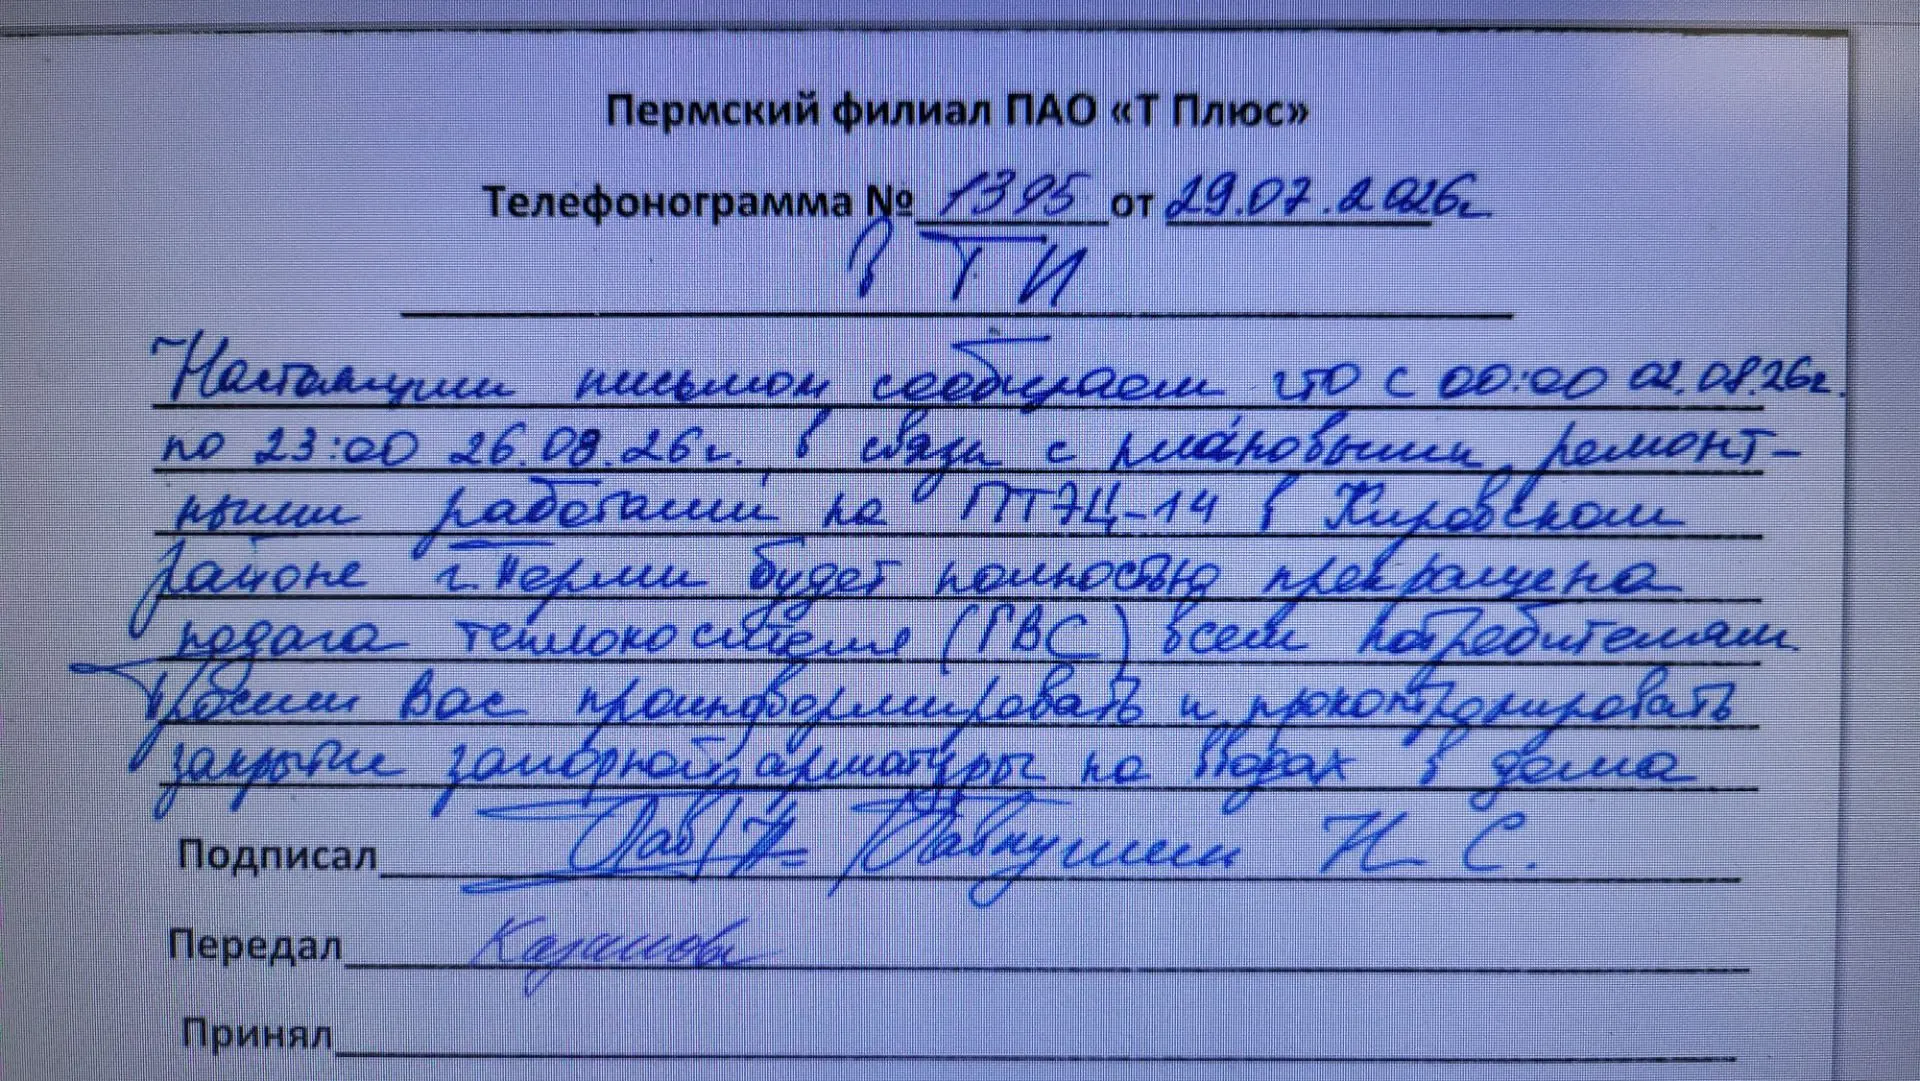 Пермский филиал ПАО «Т Плюс»
Телефонограмма № 1395 от 29.07.2026г.
В ТИ
Настоящим письмом сообщаем что с 00:00 02.08.26г.
по 23:00 26.08.26г. в связи с плановыми ремонт-
ными работами на ПТЭЦ-14 в Кировском
районе г. Перми будет полностью прекращена
подача теплоносителя (ГВС) всем потребителям.
Просим Вас проинформировать и проконтролировать
закрытие запорной арматуры на вводах в дома
Подписал Н. С.
Передал
Принял